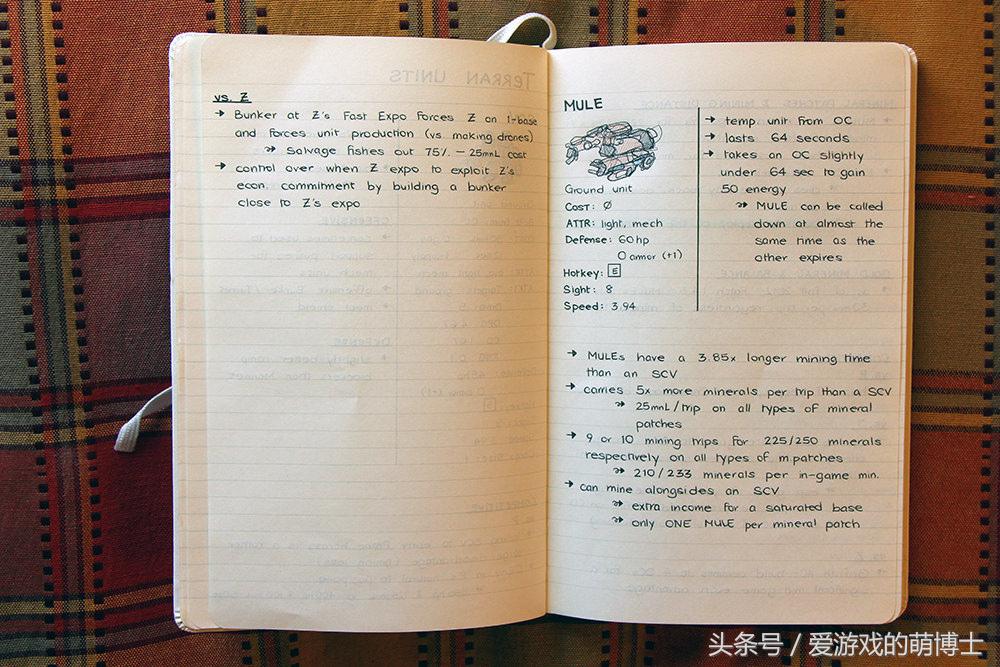 vs. Z
→ Bunker at Z's Fast Expo forces Z on 1-base
and forces unit production (vs. making drones)
↝ Salvage fishes out 75% – 25mnL cost
→ control over when Z expo to exploit Z's
econ. commitment by building a bunker
close to Z's expo
TERRAN UNITS
MULE
Ground unit
COST: Ø
ATTR: light, mech
Defense: 60hp
0 amor (+1)
Hotkey: E
Sight: 8
Speed: 3.94
→ temp. unit from OC
→ lasts 64 seconds
→ takes an OC slightly
under 64 sec to gain
50 energy
↝ MULE can be called
down at almost the
same time as the
other expires
→ MULEs have a 3.85x longer mining time
than an SCV
→ carries 5x more minerals per trip than a SCV
↝ 25mnL/trip on all types of mineral
patches
→ 9 or 10 mining trips for 225/250 minerals
respectively on all types of m.patches
↝ 210/233 minerals per in-game min.
→ can mine alongsides an SCV
↝ extra income for a saturated base
↝ only ONE MULE per mineral patch
头条号 / 爱游戏的萌博士